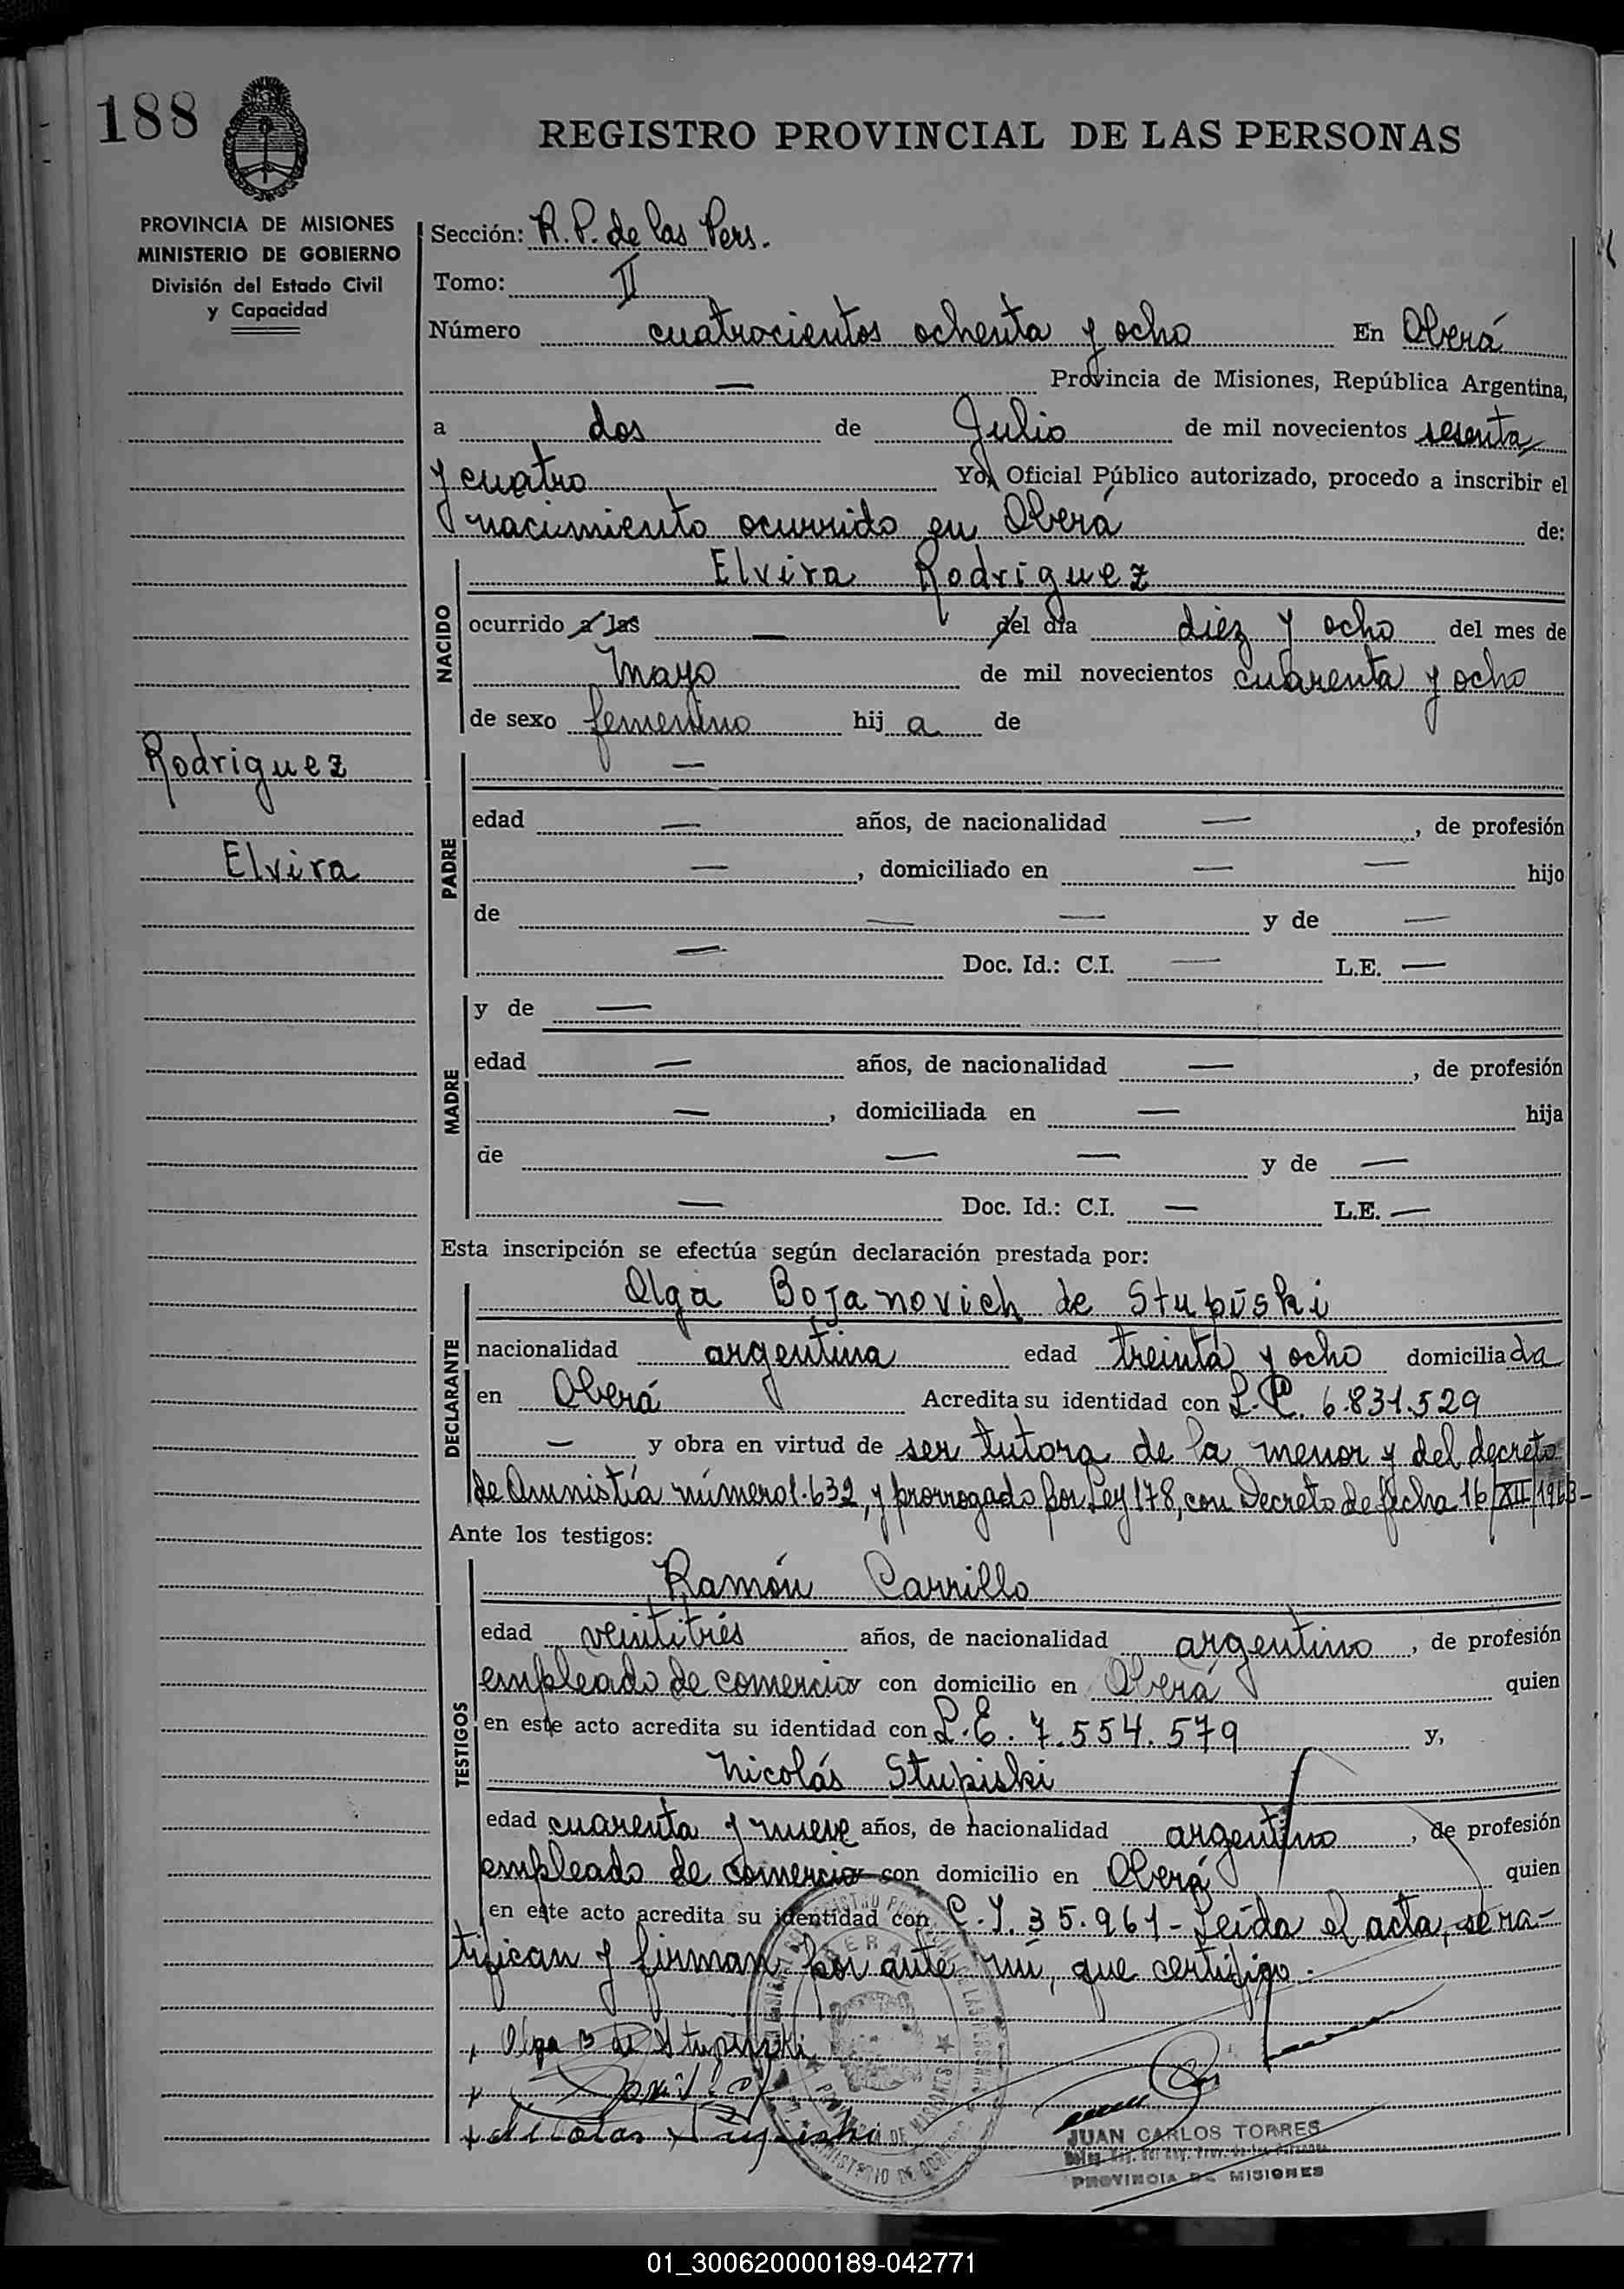 188
REGISTRO PROVINCIAL DE LAS PERSONAS
PROVINCIA DE MISIONES
MINISTERIO DE GOBIERNO
División del Estado Civil
y Capacidad
Rodriguez
Elvira
Sección: R. P. de las Pers.
Tomo: II
Número cuatrocientos ochenta y ocho En Oberá
— Provincia de Misiones, República Argentina,
a dos de Julio de mil novecientos sesenta
y cuatro Yo, Oficial Público autorizado, procedo a inscribir el
nacimiento ocurrido en Oberá de:
NACIDO
Elvira Rodriguez
ocurrido a las — del día diez y ocho del mes de
Mayo de mil novecientos cuarenta y ocho
de sexo femenino hij a de
PADRE
—
edad — años, de nacionalidad —, de profesión
—, domiciliado en — — hijo
de — — y de —
— Doc. Id.: C.I. — L.E. —
MADRE
y de —
edad — años, de nacionalidad —, de profesión
—, domiciliada en — hija
de — — y de —
— Doc. Id.: C.I. — L.E. —
Esta inscripción se efectúa según declaración prestada por:
DECLARANTE
Olga Bojanovich de Stupiski
nacionalidad argentina edad treinta y ocho domicilia da
en Oberá Acredita su identidad con L.C. 6.831.529
— y obra en virtud de ser tutora de la menor y del decreto
de Amnistía número 1.632, y prorrogado por Ley 178, con Decreto de fecha 16/XII/1963-
Ante los testigos:
TESTIGOS
Ramón Carrillo
edad veintitrés años, de nacionalidad argentino, de profesión
empleado de comercio con domicilio en Oberá quien
en este acto acredita su identidad con L.E. 7.554.579 y,
Nicolás Stupiski
edad cuarenta y nueve años, de nacionalidad argentino, de profesión
empleado de comercio con domicilio en Oberá quien
en este acto acredita su identidad con C.I. 35.961- Leída el acta, se ra-
tifican y firman por ante mí, que certifico.
Olga B de Stupiski
Nicolas Stupiski
JUAN CARLOS TORRES
PROVINCIA DE MISIONES
01_300620000189-042771